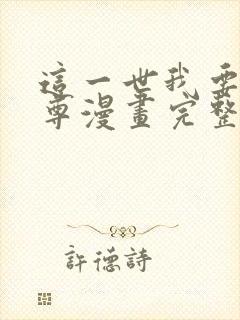 這一世我要
尊漫畫完整
許德詩